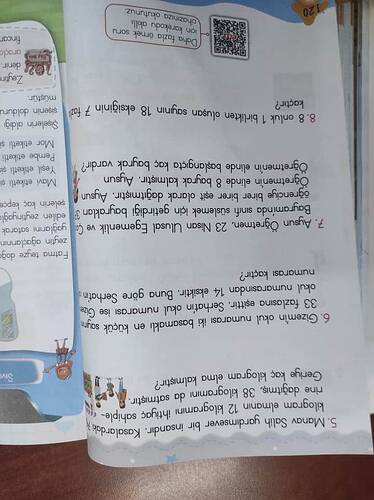 5. Manav Salih yardımsever bir insandır. Kasalardaki
kilogram elmanın 12 kilogramını ihtiyaç sahiple-
rine dağıtmış, 38 kilogramını da satmıştır.
Geriye kaç kilogram elma kalmıştır?
6. Gizem'in okul numarası iki basamaklı en küçük
33 fazlasına eşittir. Serhat'ın okul numarası ise
okul numarasından 14 eksiktir. Buna göre Serhat'ın
numarası kaçtır?
7. Aysun Öğretmen, 23 Nisan Ulusal Egemenlik ve
Bayramında sınıfı süslemek için getirdiği bayrakları
öğrenciye birer birer eşit olarak dağıtmıştır. Aysun
Öğretmenin elinde 8 bayrak kalmıştır. Aysun
Öğretmenin elinde başlangıçta kaç bayrak vardır?
8. 8 onluk 1 birlikten oluşan sayının 18 eksiğinin 7
kaçtır?
Daha fazla örnek soru
için karekodu akıllı
cihazınıza okutunuz.
120
Fatma teyze
zeytin ağaçlarının
yağlarını satarak
edilen zeytinyağı
setlerin kaç
Mavi etiketli
Yeşil etiketli
Pembe etiketli
Mor etiketli
Şişelerin aldığı
şişenin
müştür.
denir.